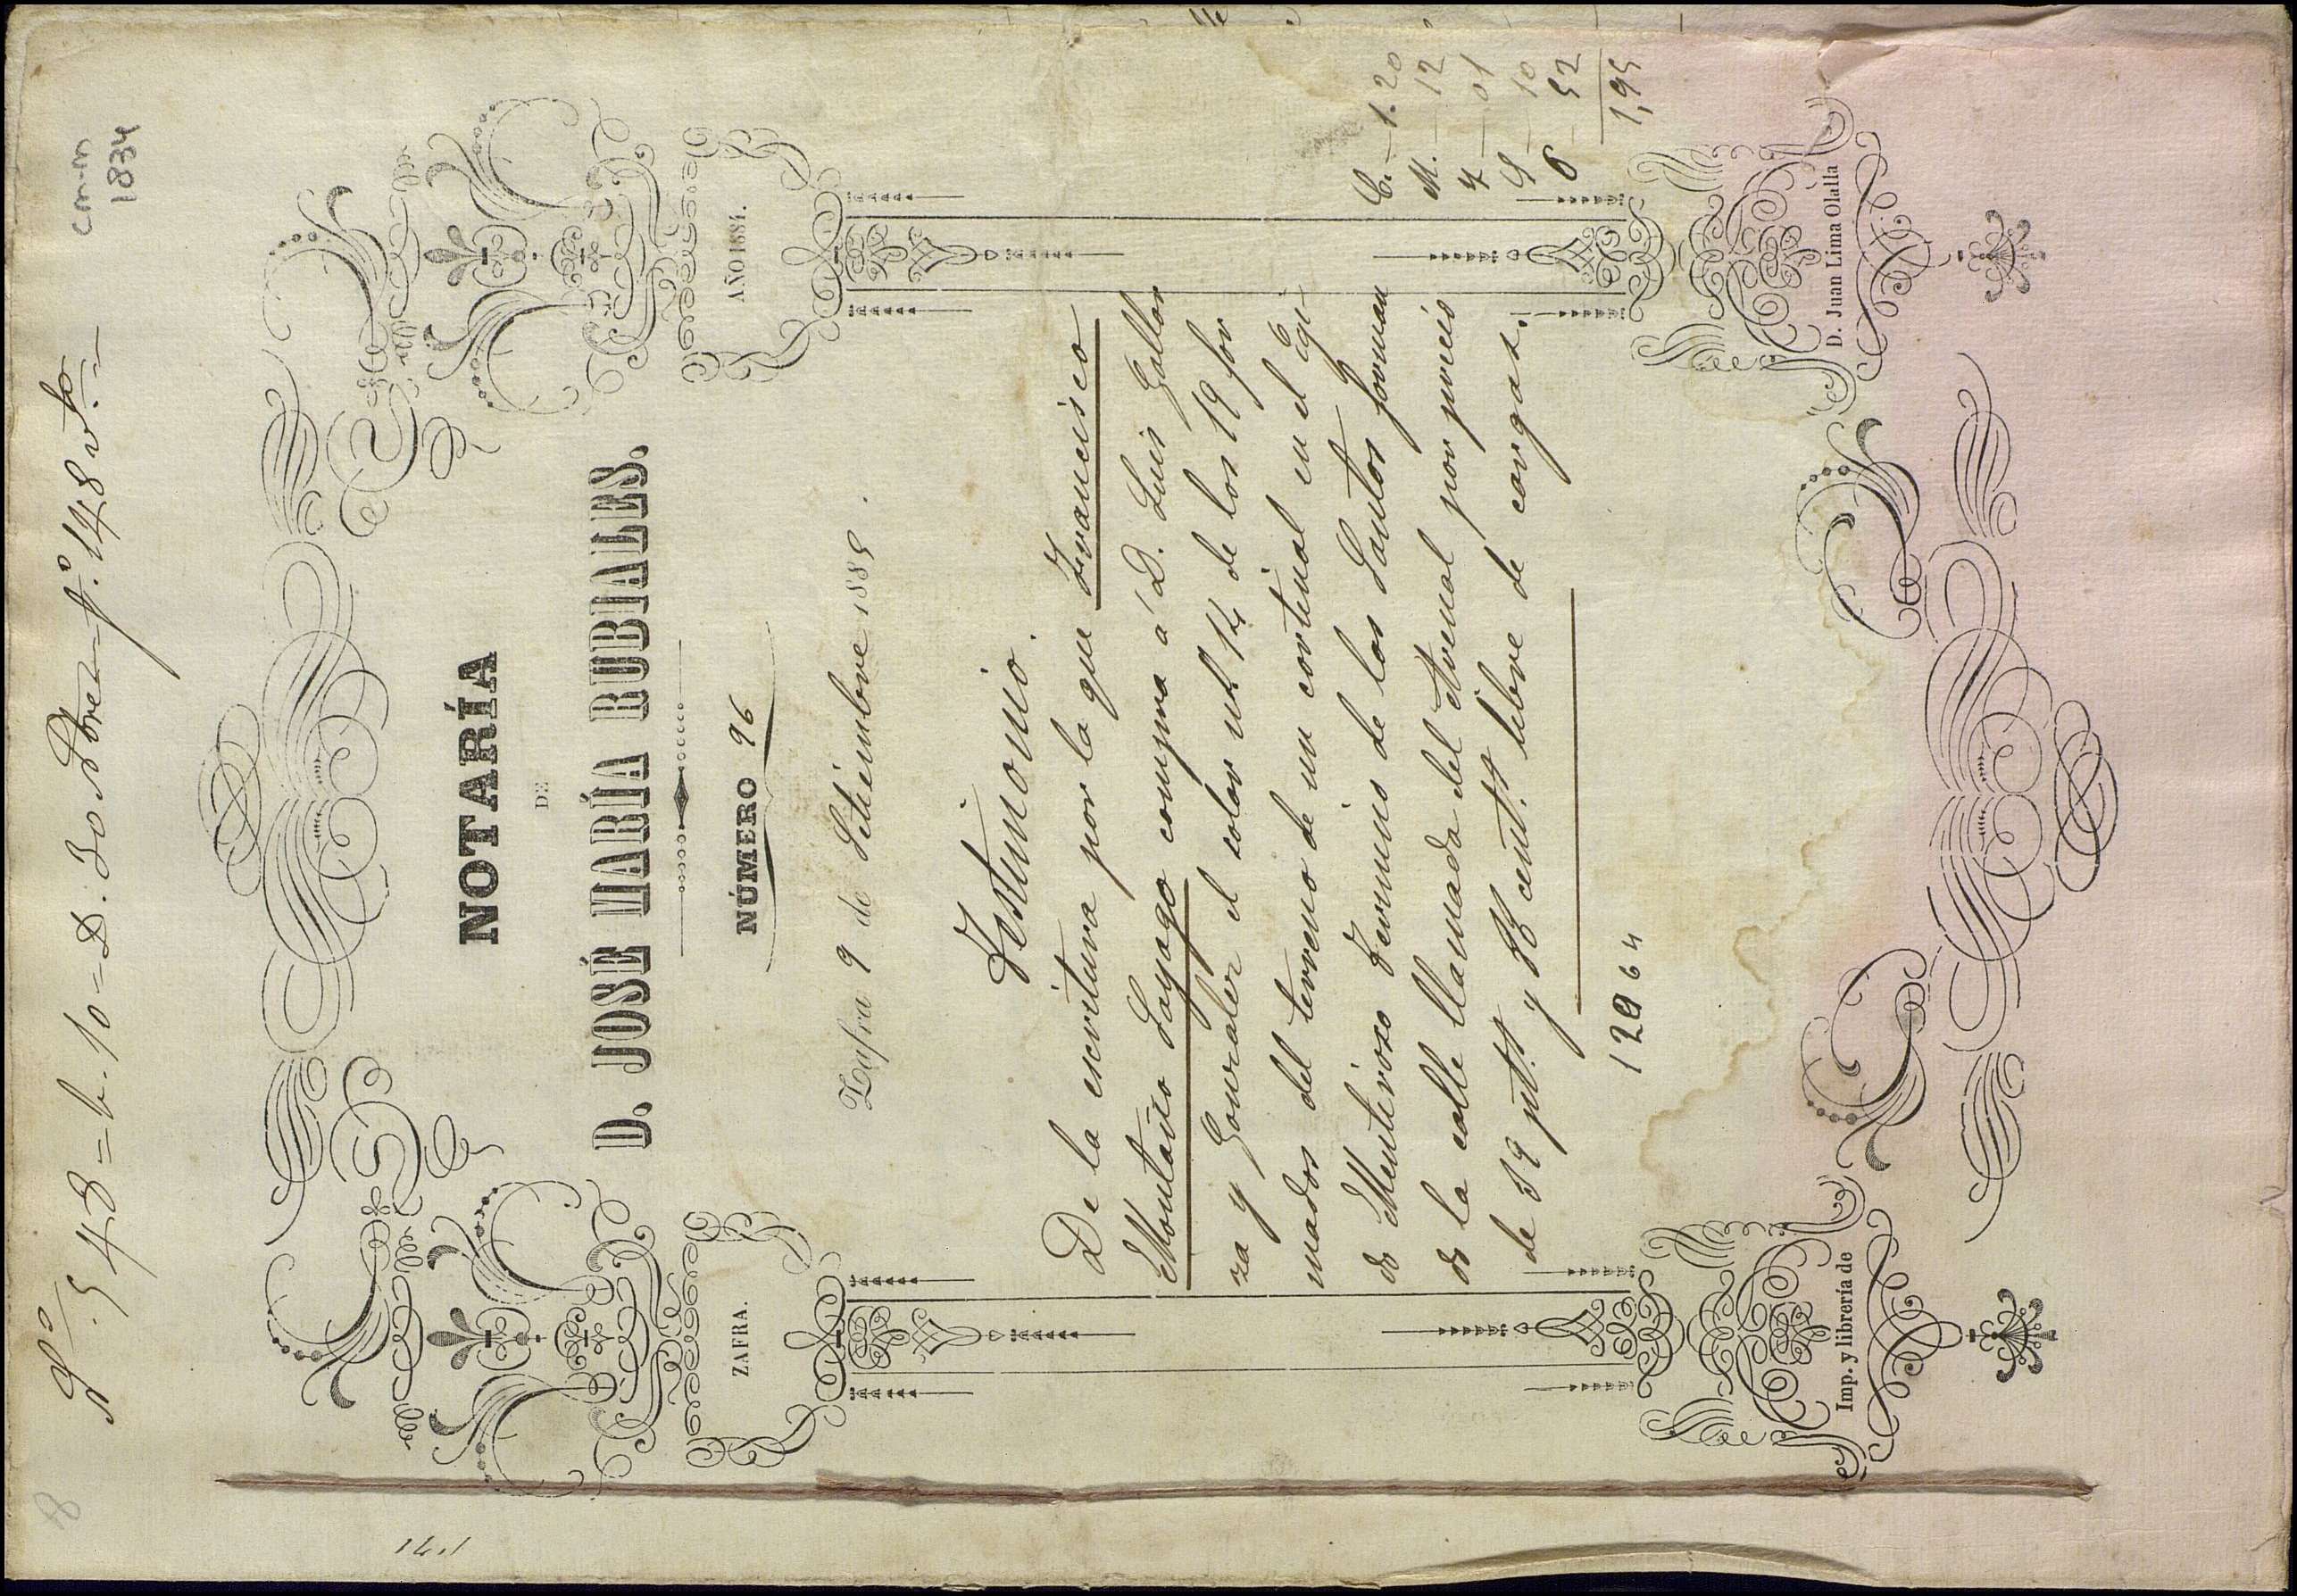 cm-m
1834
48 = b. 10 = D. 30 f.º 148 v.to
8
NOTARÍA
DE
D. JOSÉ MARÍA RUBIALES.
ZAFRA.
AÑO 1884.
NÚMERO 96
Zafra 9 de Setiembre 1885.
Testimonio.
De la escritura por la que Francisco
Montaño Sayago compra á D. Luis Gallar
za y Gonzalez el solar nº 14 de los 19 for
mados del terreno de un cortinal en el Egi
do Mentiroso Termino de los Santos forman
do la calle llamada del Arenal por precio
de 39 pt.s y cent.s libre de cargas.
C. — 1.20
M. — 12
01
10
6 — 52
1,95
12964
Imp. y librería de
D. Juan Lima Olalla